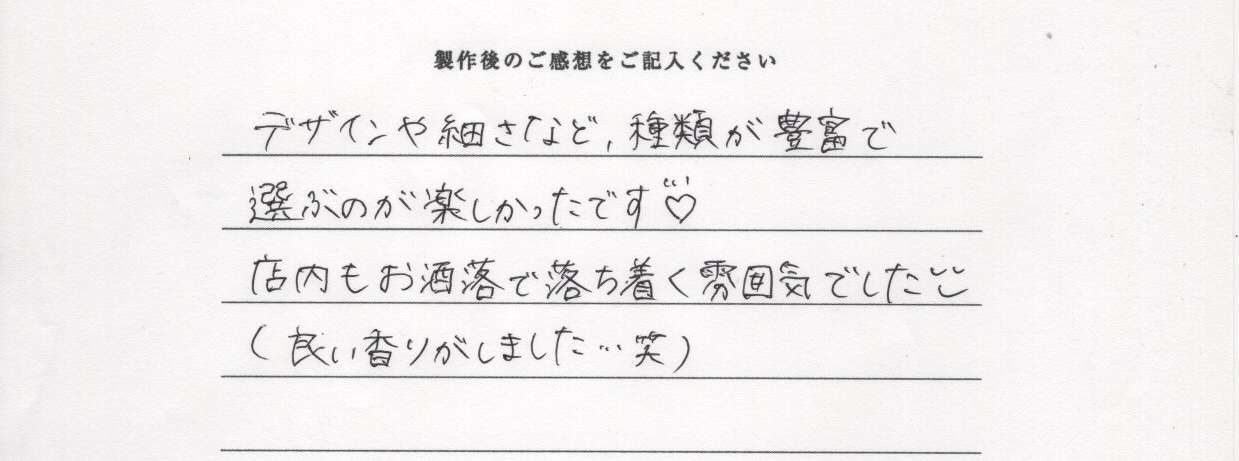 製作後のご感想をご記入ください
デザインや細さなど,種類が豊富で
選ぶのが楽しかったです♡
店内もお洒落で落ち着く雰囲気でした
(良い香りがしました…笑)